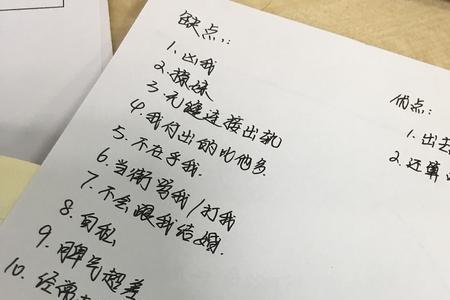 缺点：
1. 凶我
2. 撩妹
3. 无缝连接出轨
4. 我付出的比他多
5. 不在乎我.
6. 当街骂我/打我
7. 不会跟我结婚.
8. 自私
9. 脾气超差
10. 经常
优点：
1. 出去
2. 还算